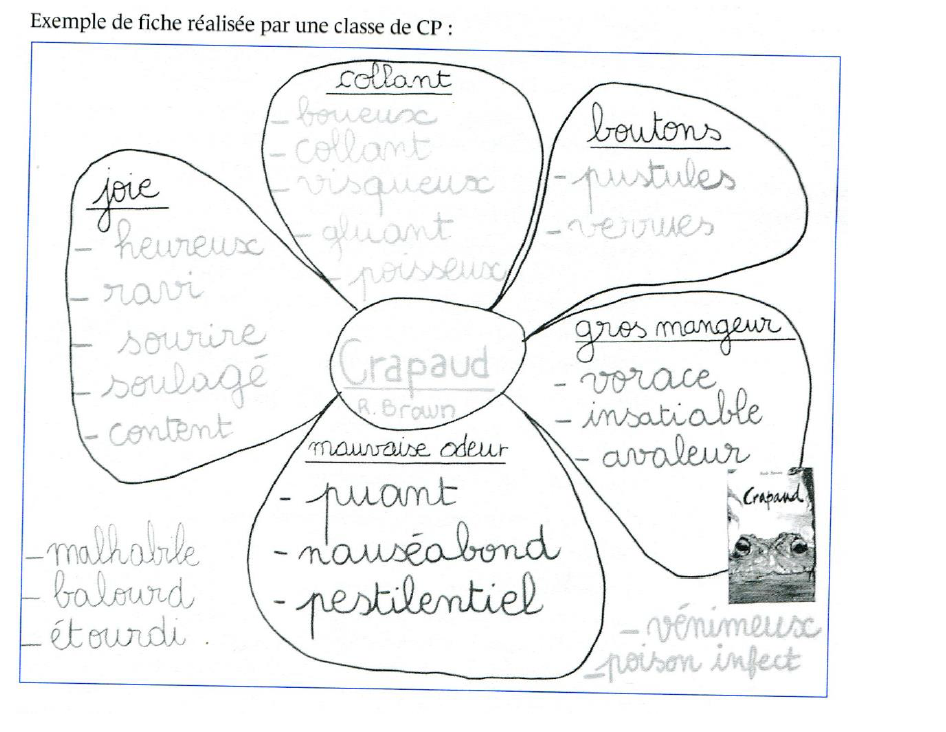 Exemple de fiche réalisée par une classe de CP :
collant
- boueux
- collant
- visqueux
- gluant
- poisseux
boutons
- pustules
- verrues
joie
- heureux
- ravi
- sourire
- soulagé
- content
Crapaud
R. Brown
gros mangeur
- vorace
- insatiable
- avaleur
Crapaud
mauvaise odeur
- puant
- nauséabond
- pestilentiel
- malhabile
- balourd
- étourdi .
- vénimeux
- poison infect